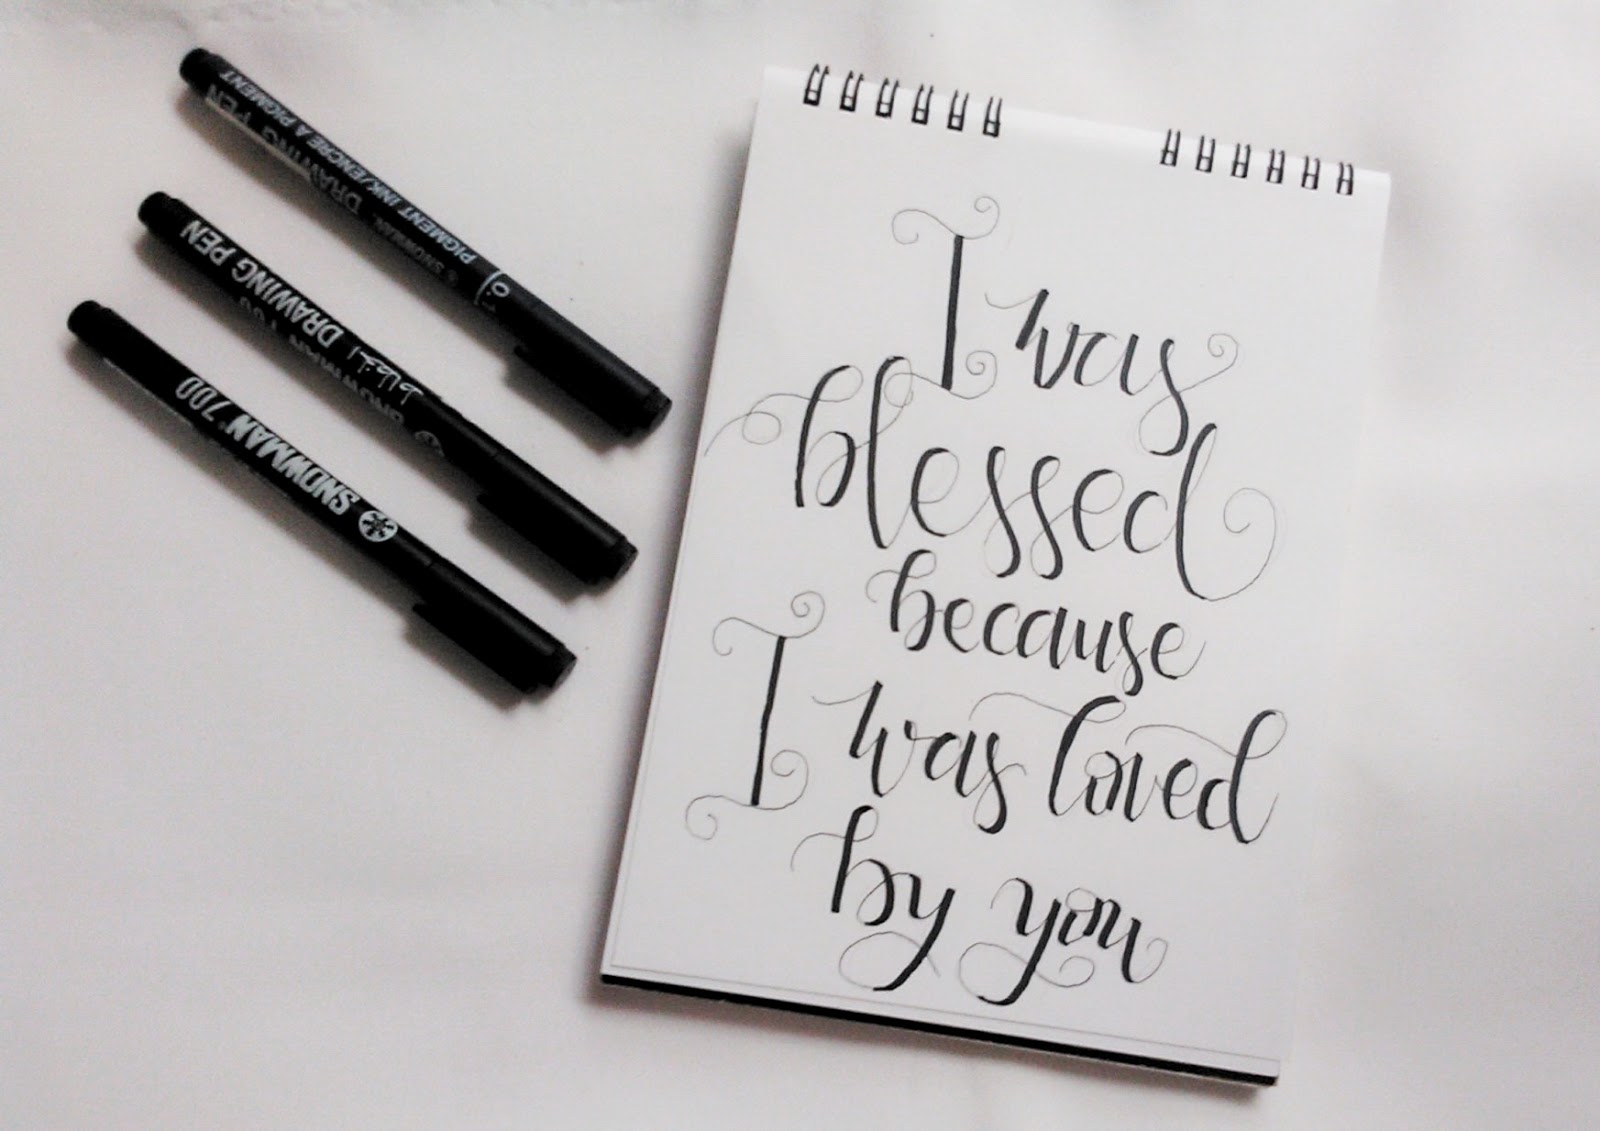 I was
blessed
because
I was loved
by you
DRAWING PEN
© SNOWMAN.
PIGMENT INK/ENCRE A PIGMENT
0.1
DRAWING PEN
SNOWMAN
SNOWMAN 700